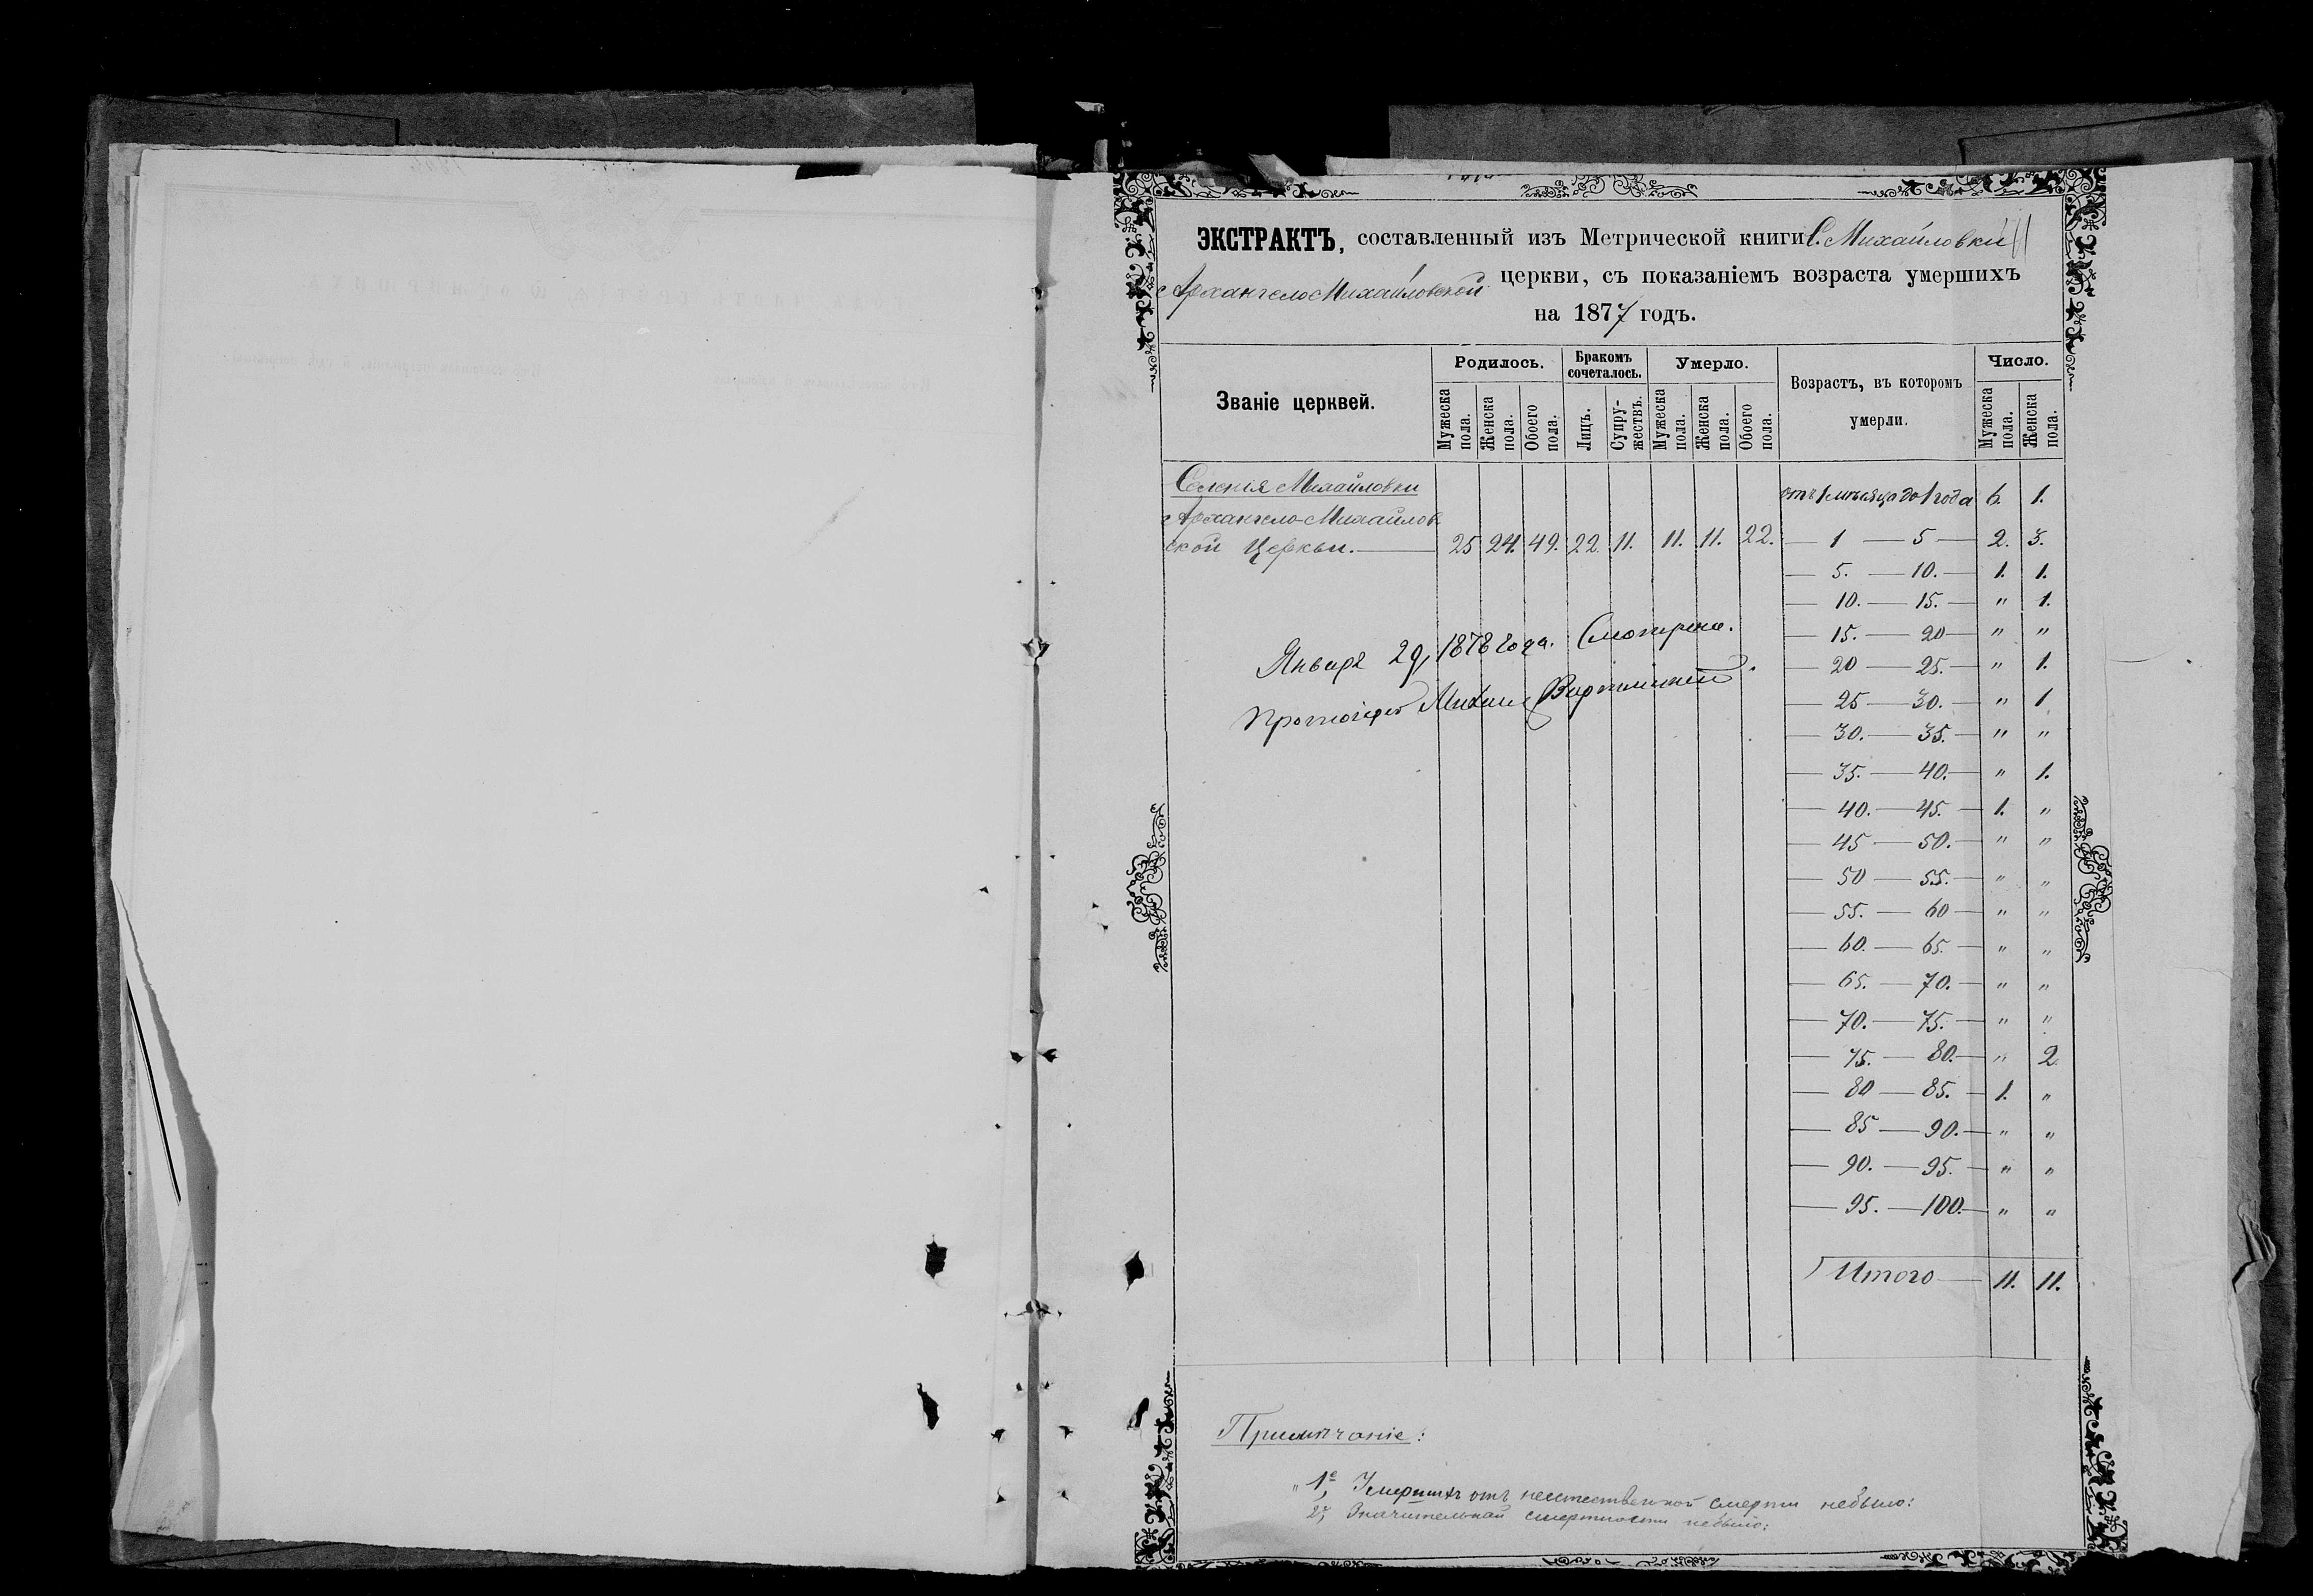 ЭКСТРАКТЪ, составленный изъ Метрической книги С. Михайловки
Архангело Михайловской церкви, съ показаніемъ возраста умершихъ
на 1877 годъ.
Званіе церквей.
Родилось.
Бракомъ сочеталось.
Умерло.
Возрастъ, въ которомъ умерли.
Число.
Мужеска пола.
Женска пола.
Обоего пола.
Лицъ.
Супружествъ.
Мужеска пола.
Женска пола.
Обоего пола.
Мужеска пола.
Женска пола.
Селенія Михайловки
Архангело-Михайлов
ской Церкви. — 25 24. 49. 22. 11. 11. 11. 22.
отъ 1 мѣсяца до 1 года 6. 1.
— 1 — 5 — 2. 3.
— 5. — 10. — 1. 1.
— 10. — 15. — " 1.
— 15. — 20 — " "
— 20 — 25. — " 1.
— 25 — 30. — " 1.
— 30. — 35. — " "
— 35. — 40. — " 1.
— 40. — 45. — 1. "
— 45 — 50. — " "
— 50 — 55. — " "
— 55. — 60 — " "
— 60. — 65. — " "
— 65. — 70. — " "
— 70. — 75. — " "
— 75. — 80. — " 2
— 80 — 85. — 1. "
— 85 — 90. — " "
— 90. — 95. — " "
— 95. — 100. — " "
Итого — 11. 11.
Января 29, 1878 года. Смотрена.
Протоіерей Михаил
Примѣчаніе:
1е, Умершихъ отъ неестественной смерти небыло:
2е, Значительной смертности небыло: